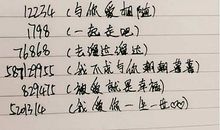 12234（与你爱相随）
1798（一起走吧）
76868（去溜达溜达）
587129955（我不求与你朝朝暮暮）
829475（被爱就是幸福）
5201314（我爱你一生一世）